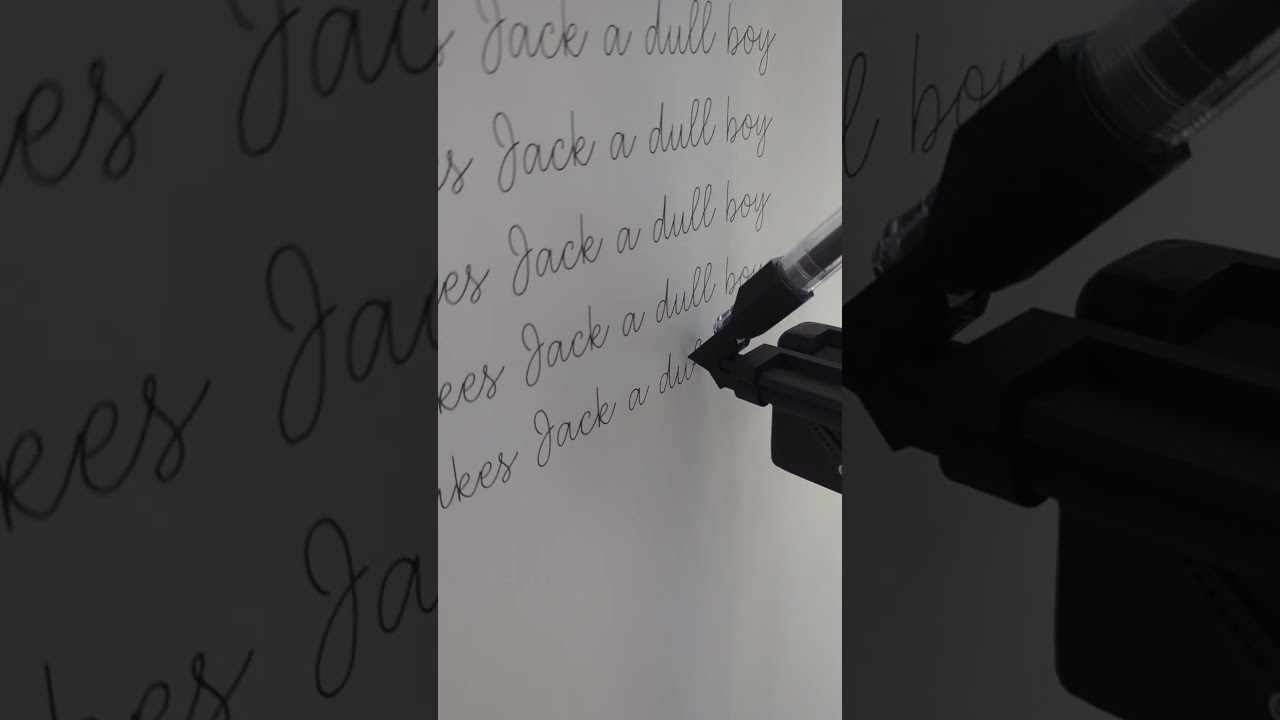 Jack a dull boy
s Jack a dull boy
es Jack a dull boy
kes Jack a dull boy
akes Jack a du